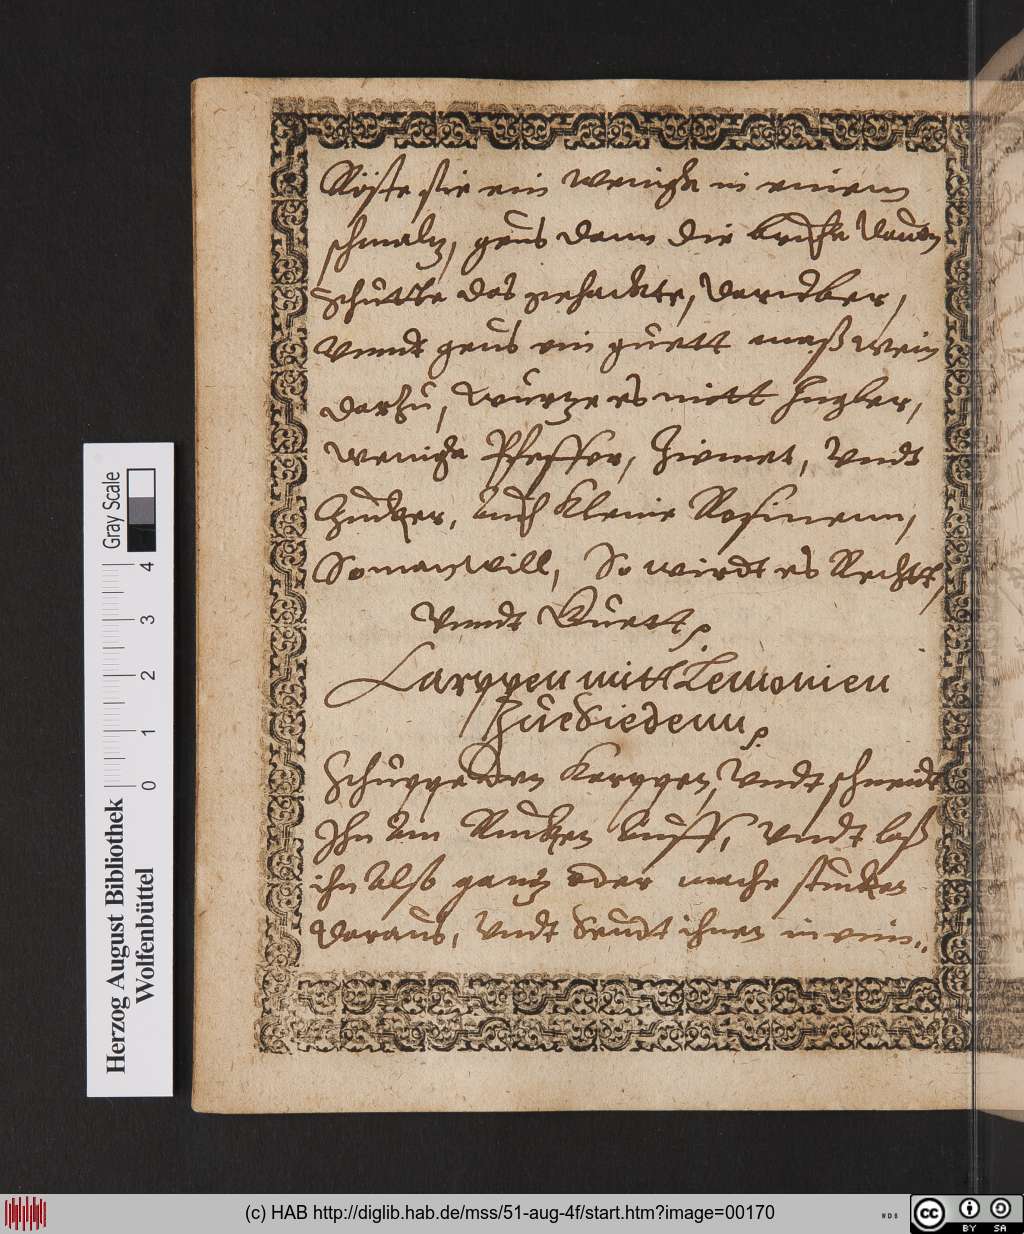 Röste sie ein wenigk in einem
schmaltz, geus dann die brüche dauon
schütte das gehackte, darüber,
vnndt geus ein guett maß wein
darzu, würtze es mitt Ingber,
wenigk Pfeffer, Zimmet, vndt
Zucker, auch kleine Rosinenn,
So man will, So wirdt es Recht,
vnndt Guett.
Karppen mitt Lemonien
Zue Siedenn.
Schuppe den Karppen, vndt schneidt
Ihn am Rücken auff, vndt laß
ihn also gantz oder mache stücken
daraus, vndt Seudt ihnen in ein..
Gray Scale
4
3
2
1
0
Herzog August Bibliothek
Wolfenbüttel
(c) HAB http://diglib.hab.de/mss/51-aug-4f/start.htm?image=00170
WDB
cc BY SA